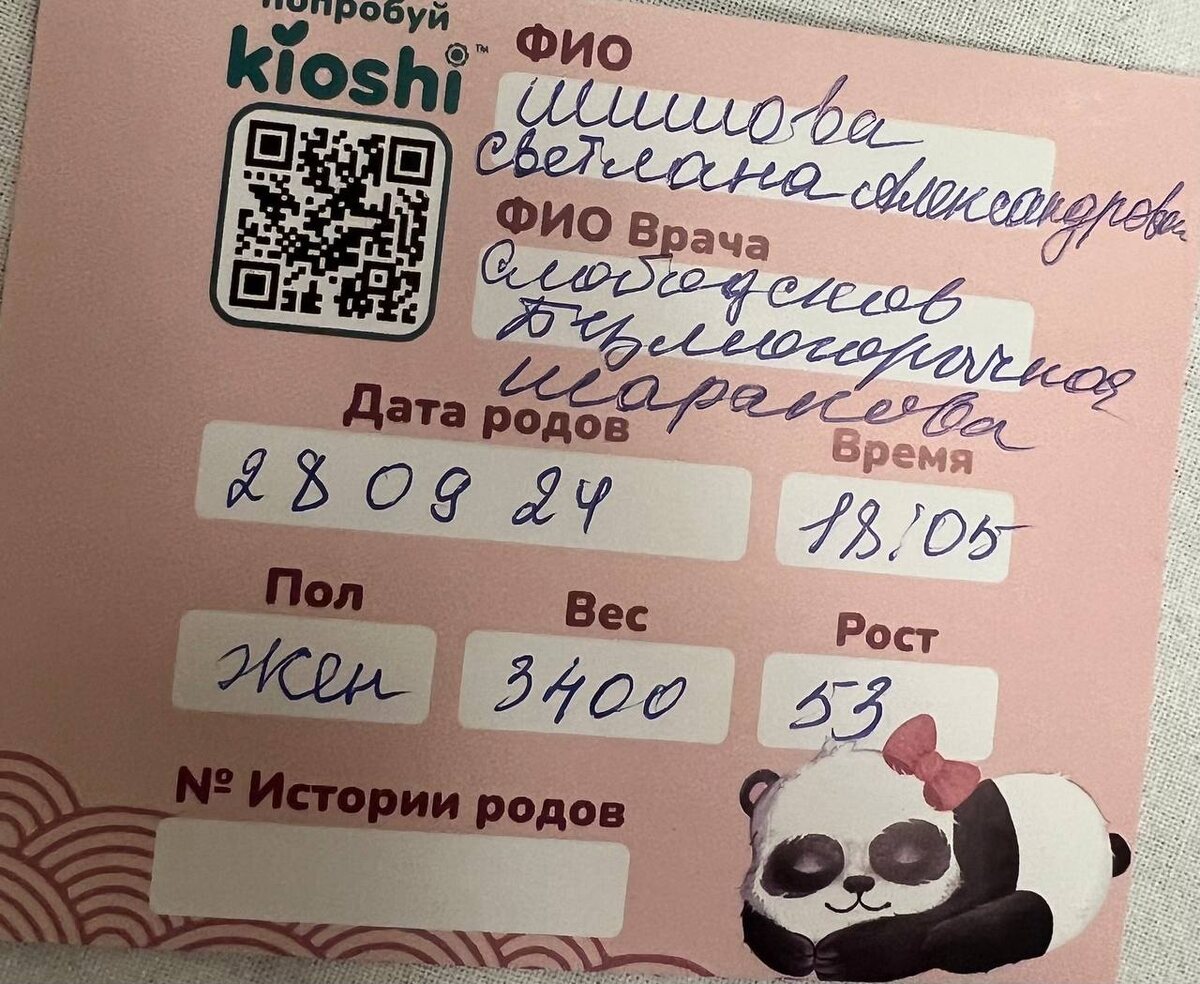 попробуй
kioshi™
ФИО
Шишова
Светлана Александровна
ФИО Врача
Слободсков
Шаракова
Дата родов
28 09 24
Время
18:05
Пол
жен
Вес
3400
Рост
53
№ Истории родов